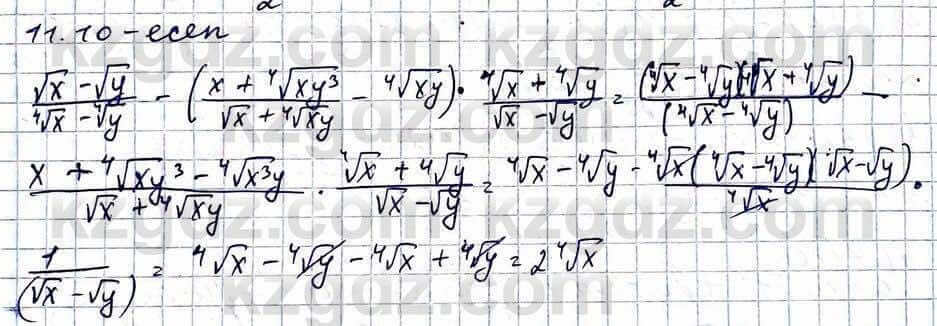 11.10-есеп
(√x - √y)/(⁴√x - ⁴√y) - ((x + ⁴√xy³)/(√x + ⁴√xy) - ⁴√xy) · (⁴√x + ⁴√y)/(√x - √y) = (⁴√x - ⁴√y)(⁴√x + ⁴√y)/(⁴√x - ⁴√y) -
(x + ⁴√xy³ - ⁴√x³y)/(√x + ⁴√xy) · (⁴√x + ⁴√y)/(√x - √y) = ⁴√x - ⁴√y - ⁴√x(⁴√x - ⁴√y)(√x - √y)/⁴√x ·
1/(√x - √y) = ⁴√x - ⁴√y - ⁴√x + ⁴√y = 2⁴√x
kzgdz.com